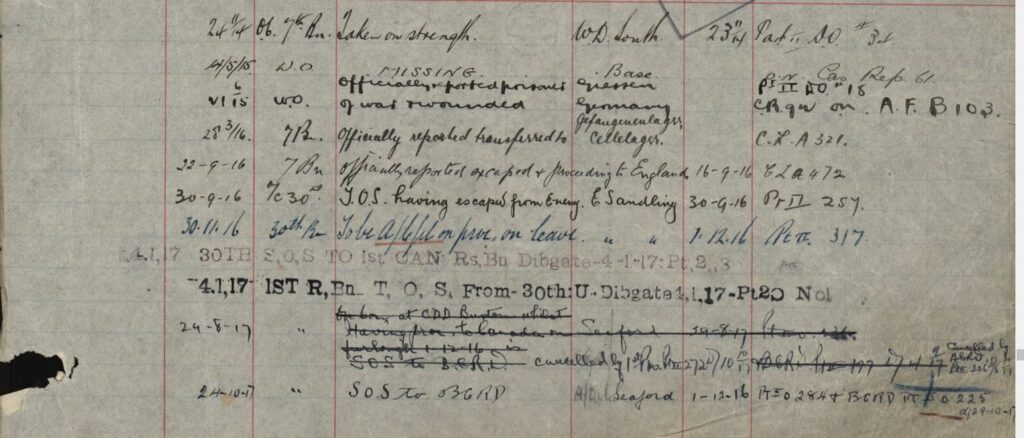 24 11/14 O.C. 7th Bn. Taken on strength. W.D. South. 23 11/14 Part II D.O. # 34
14/5/15 W.O. MISSING. Base. Cas. Rep. 61.
6 Officially reported prisoner Giessen Pt II D.O. 18
VI 15 W.O. of war & wounded Germany C.R. on A.F. B103.
Gefangenenlager,
28 3/16. 7 Bn. Officially reported transferred to Cellelager. C.L. A 321.
22-9-16 7 Bn Officially reported escaped & proceeding to England 16-9-16 C L A 472
30-9-16 30th T.O.S. having escaped from Enemy. E Sandling 30-9-16 Pt II 257.
30.11.16 30th Bn To be A/Cpl on prov. on leave. " " 1.12.16 Pt II. 317
4.1,17 30TH S,O,S TO 1st CAN Rs,Bn Dibgate-4-1-17:Pt,2,3
-4.1,17 1ST R,Bn T, O, S, From-30th:U-Dibgate 4.1.17-Pt2O No1
at CDD Buxton whilst
29-8-17 " Having to Canada on Seaford 29-8-17
furlough 1-12-16 is
SOS to BCRD. cancelled by 1st Res. 272 10/17 Cancelled by
24-10-17 " S.O.S to BCRD Seaford 1-12-16 Pt II O 284 & BCRD Pt II O.225
d/29-10-17